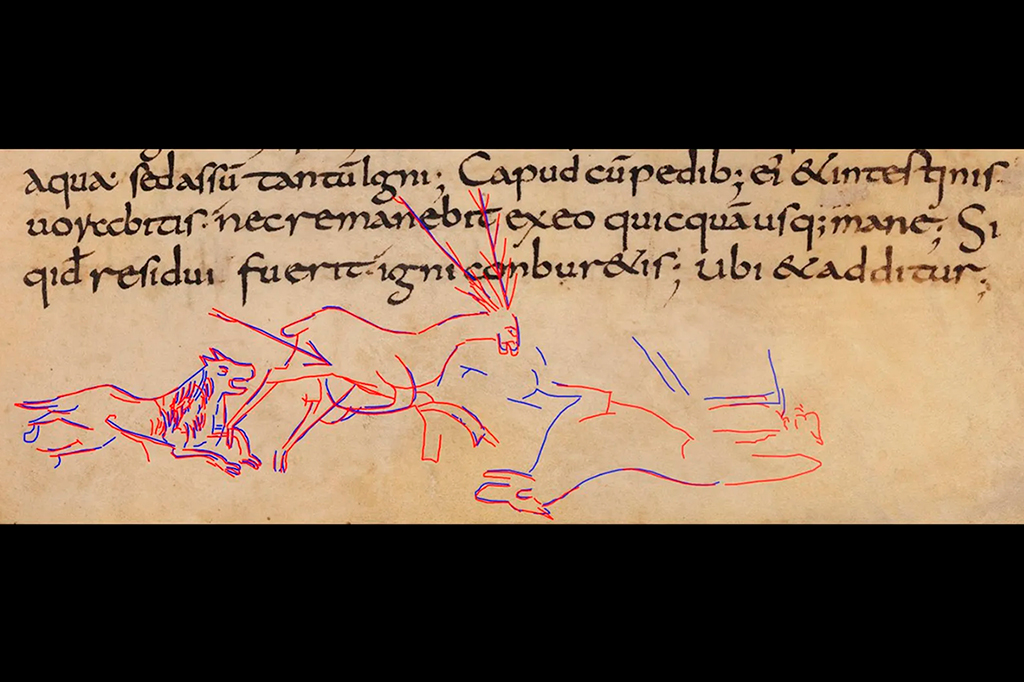 aqua· sed assū tantū Igni; Capud cū pedib; ei & intestinis
uorabitis· nec remanebit ex eo quicquā usq; mane; Si
qid residui fuerit· igni combur&is; Ubi & additur;